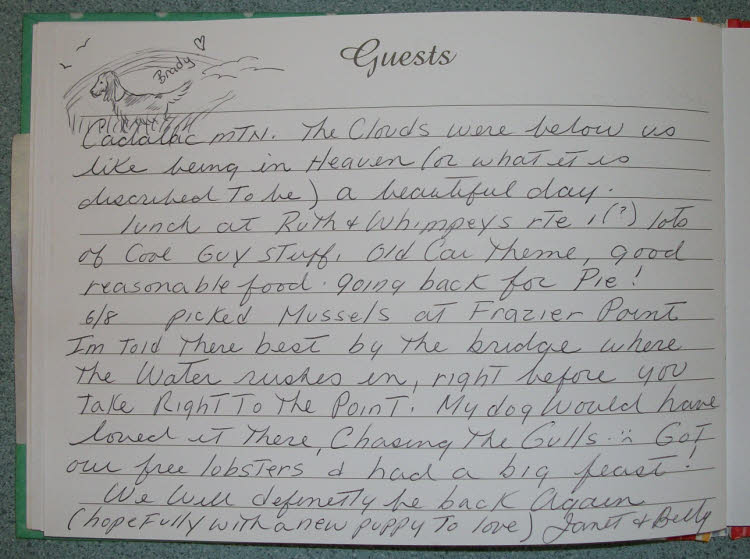 Guests
Brady
Cadalac MTN. The Clouds were below us
like being in Heaven (or what it is
discribed To be) a beautiful day.
lunch at Ruth & Whimpeys rte 1(?) lots
of Cool Guy stuff. Old Car Theme, good
reasonable food. going back for Pie!
6/8 picked Mussels at Frazier Point
Im Told There best by The bridge where
The Water rushes in, right before you
Take Right To The Point. My dog Would have
loved it There, Chasing The Gulls :( Got
our free lobsters & had a big feast!
We Will definetly be back Again
(hopefully with a new puppy To love) Janet & Betty